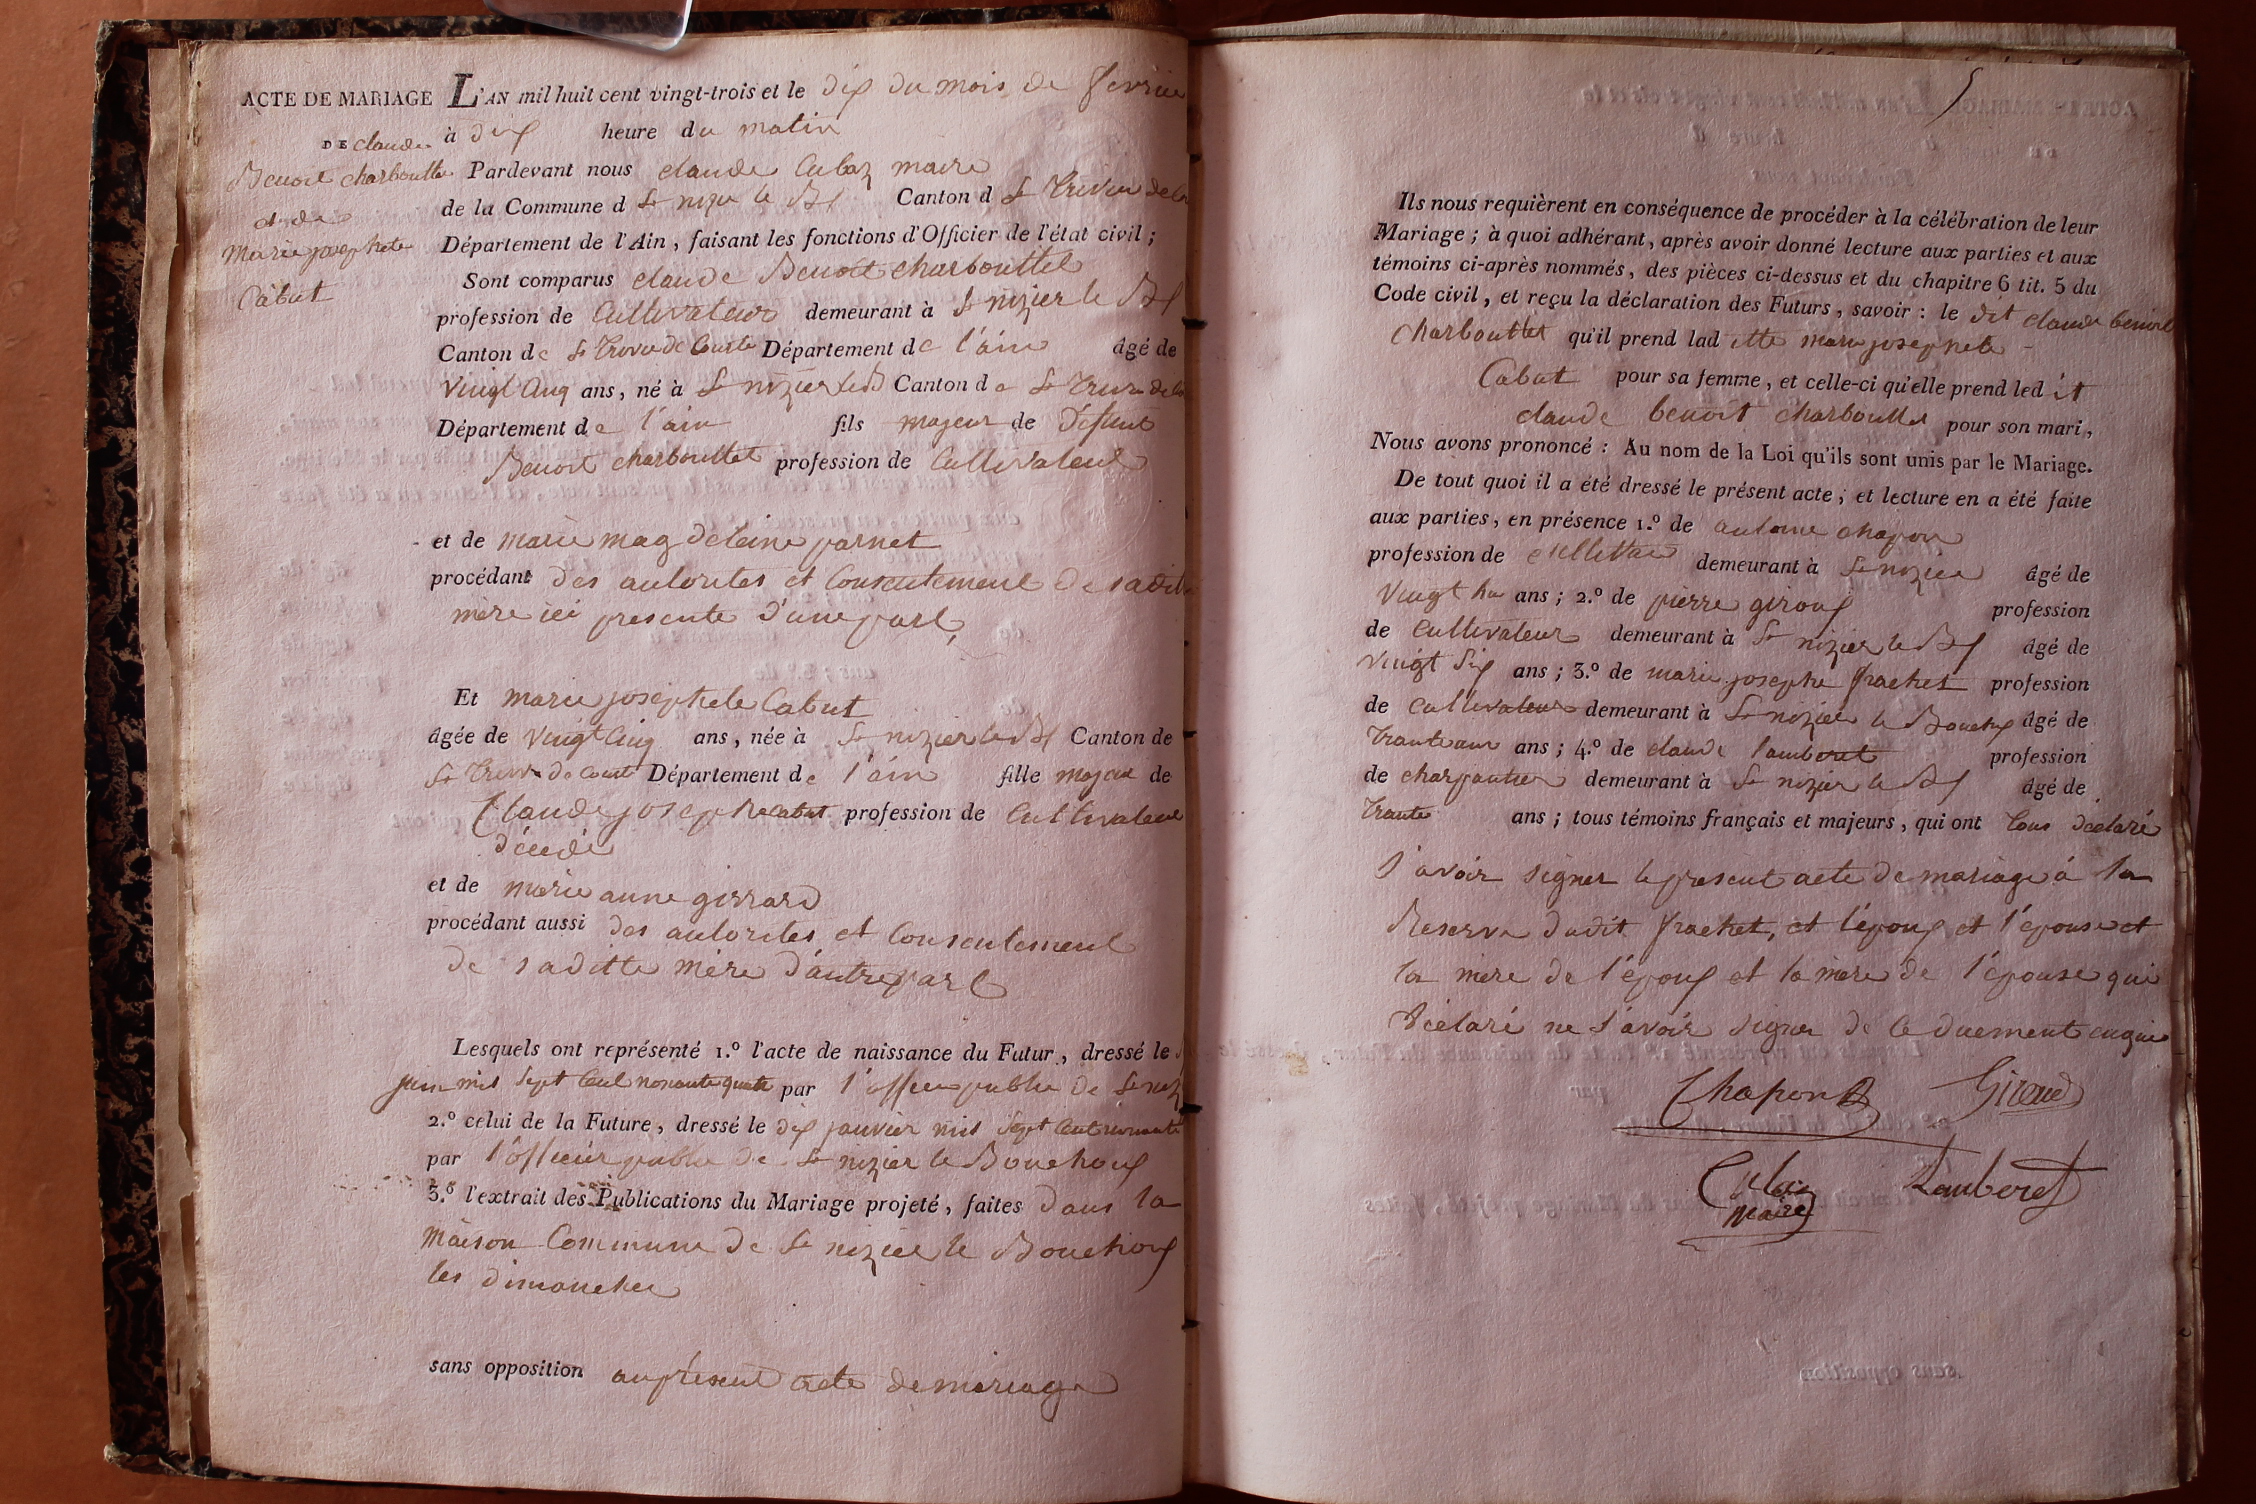 ACTE DE MARIAGE
DE claude
Benoit charbouttet
et de
Marie josephete
Cabut
L'AN mil huit cent vingt-trois et le dix du mois de fevrier
à dix heure du matin
Pardevant nous claude Cubaz maire
de la Commune d St nizier le Bx Canton d St Trivier de
Département de l'Ain, faisant les fonctions d'Officier de l'état civil;
Sont comparus claude Benoit charbouttet
profession de Cultivateur demeurant à St nizier le Bx
Canton de St Trivier de Courte Département de l'ain âgé de
Vingt Cinq ans, né à St nizier le B Canton de St Trivier de
Département de l'ain fils majeur de Défunt
Benoit charbouttet profession de Cultivateur
et de marie magdeleine parnet
procédant des autorites et Consentement de sadit
mère ici presente d'une part,
Et marie josephete Cabut
âgée de vingt Cinq ans, née à St nizier le Bx Canton de
St Trivier de Courte Département de l'ain fille majeur de
Claude josephe Cabut profession de Cultivateur
décédé
et de marie anne girrard
procédant aussi des autorites et Consentement
de saditte mère d'autre part
Lesquels ont représenté 1.º l'acte de naissance du Futur, dressé le
juin mil Sept Cent nonante quatre par l'officier public de St niz
2.º celui de la Future, dressé le dix janvier mil Sept Cent nonante
par l'officier public de St nizier le Bouchoux
3.º l'extrait des Publications du Mariage projeté, faites dans la
maison Commune de St nizier le Bouchoux
les dimanches
sans opposition au présent acte de mariage
Ils nous requièrent en conséquence de procéder à la célébration de leur
Mariage; à quoi adhérant, après avoir donné lecture aux parties et aux
témoins ci-après nommés, des pièces ci-dessus et du chapitre 6 tit. 5 du
Code civil, et reçu la déclaration des Futurs, savoir: le dit claude benoit
Charbouttet qu'il prend lad itte marie josephete
Cabut pour sa femme, et celle-ci qu'elle prend led it
claude benoit charbouttet pour son mari,
Nous avons prononcé: Au nom de la Loi qu'ils sont unis par le Mariage.
De tout quoi il a été dressé le présent acte; et lecture en a été faite
aux parties, en présence 1.º de antoine chapon
profession de demeurant à St nizier âgé de
Vingt ans; 2.º de pierre giroux profession
de Cultivateur demeurant à St nizier le Bx âgé de
vingt Six ans; 3.º de marie josephe frachet profession
de Cultivateur demeurant à St nizier le Bouchoux âgé de
ans; 4.º de claude Lamberet profession
de charpantier demeurant à St nizier le Bx âgé de
trante ans; tous témoins français et majeurs, qui ont tous déclaré
savoir signer le présent acte de mariage à la
Reserve dudit frachet, et l'époux et l'épouse et
la mère de l'époux et la mère de l'épouse qui
déclaré ne savoir signer de ce duement enquis
Chapon Giroud
Cubaz Lamberet
Maire